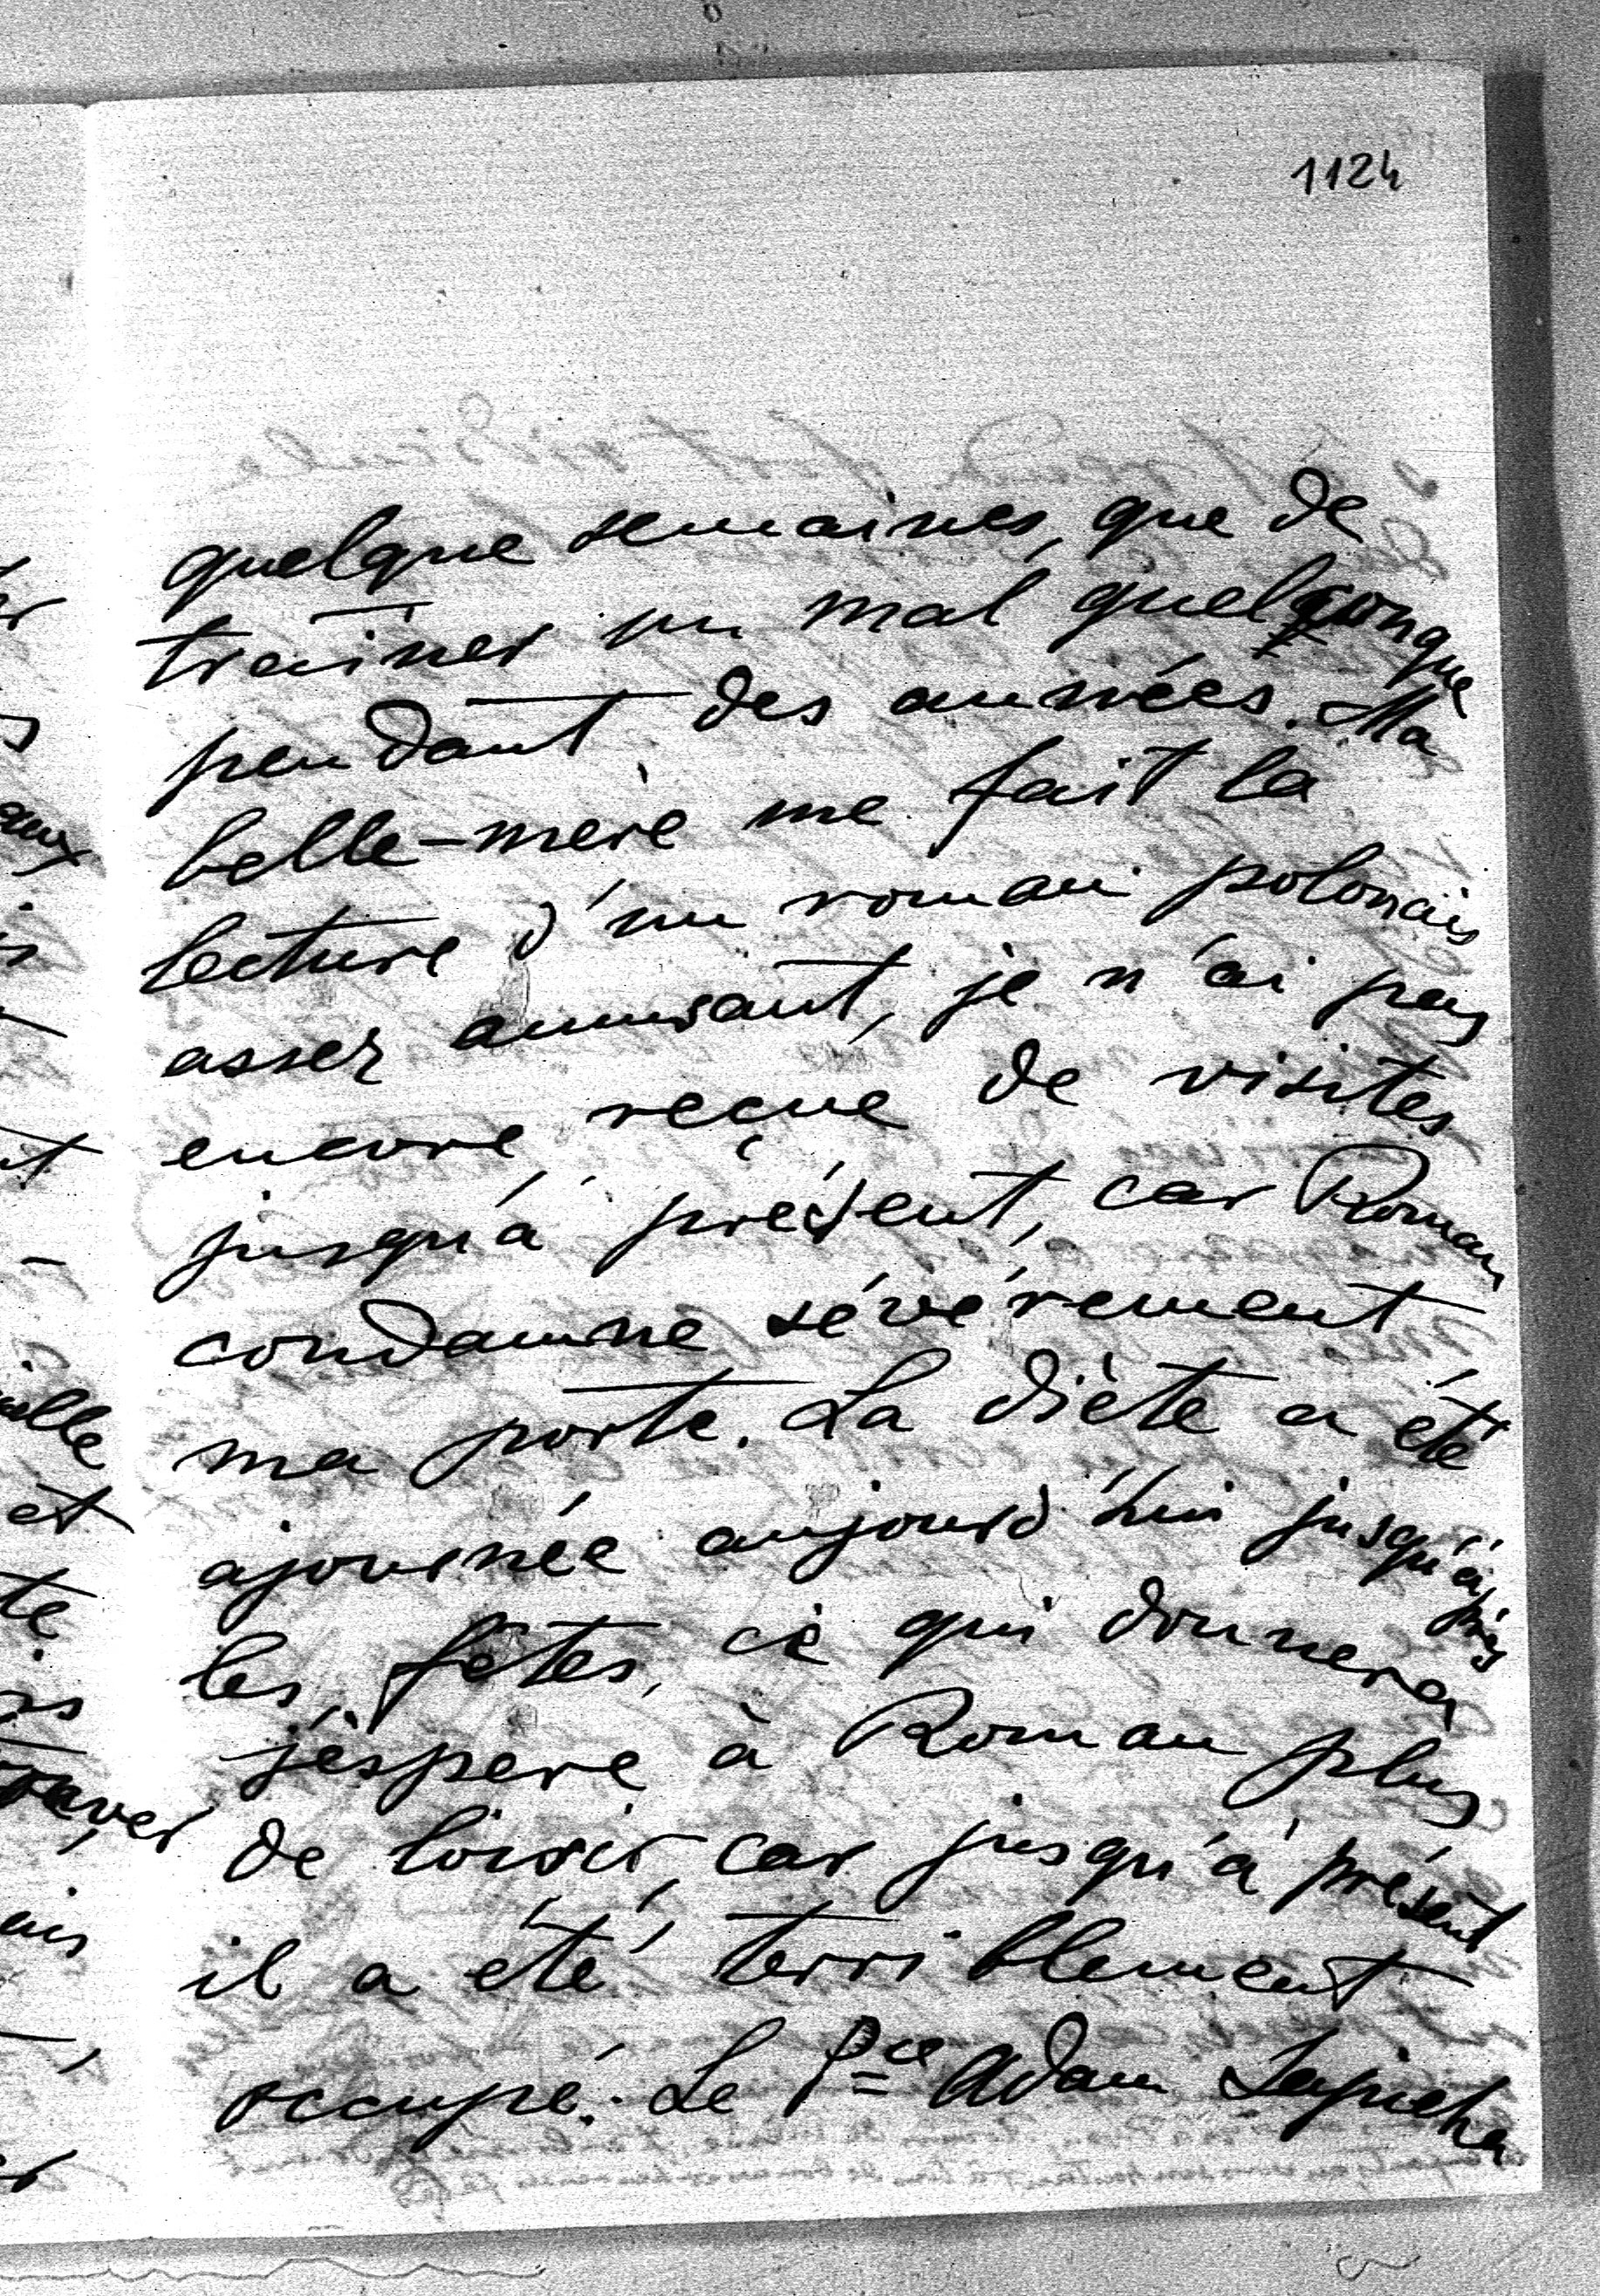 1124
quelque semaines, que de
traîner un mal quelconque
pendant des années. Ma
belle-mère me fait la
lecture d'un roman polonais
assez amusant, je n'ai pas
encore reçue de visites
jusqu'à présent, car Roman
condamne sévérement
ma porte. La diète a été
ajournée aujourd'hui jusqu'après
les fêtes, ce qui donnera
j'éspere à Roman plus
de loisir, car jusqu'à présent
il a été terriblement
occupé. Le Pce Adam Sapieha